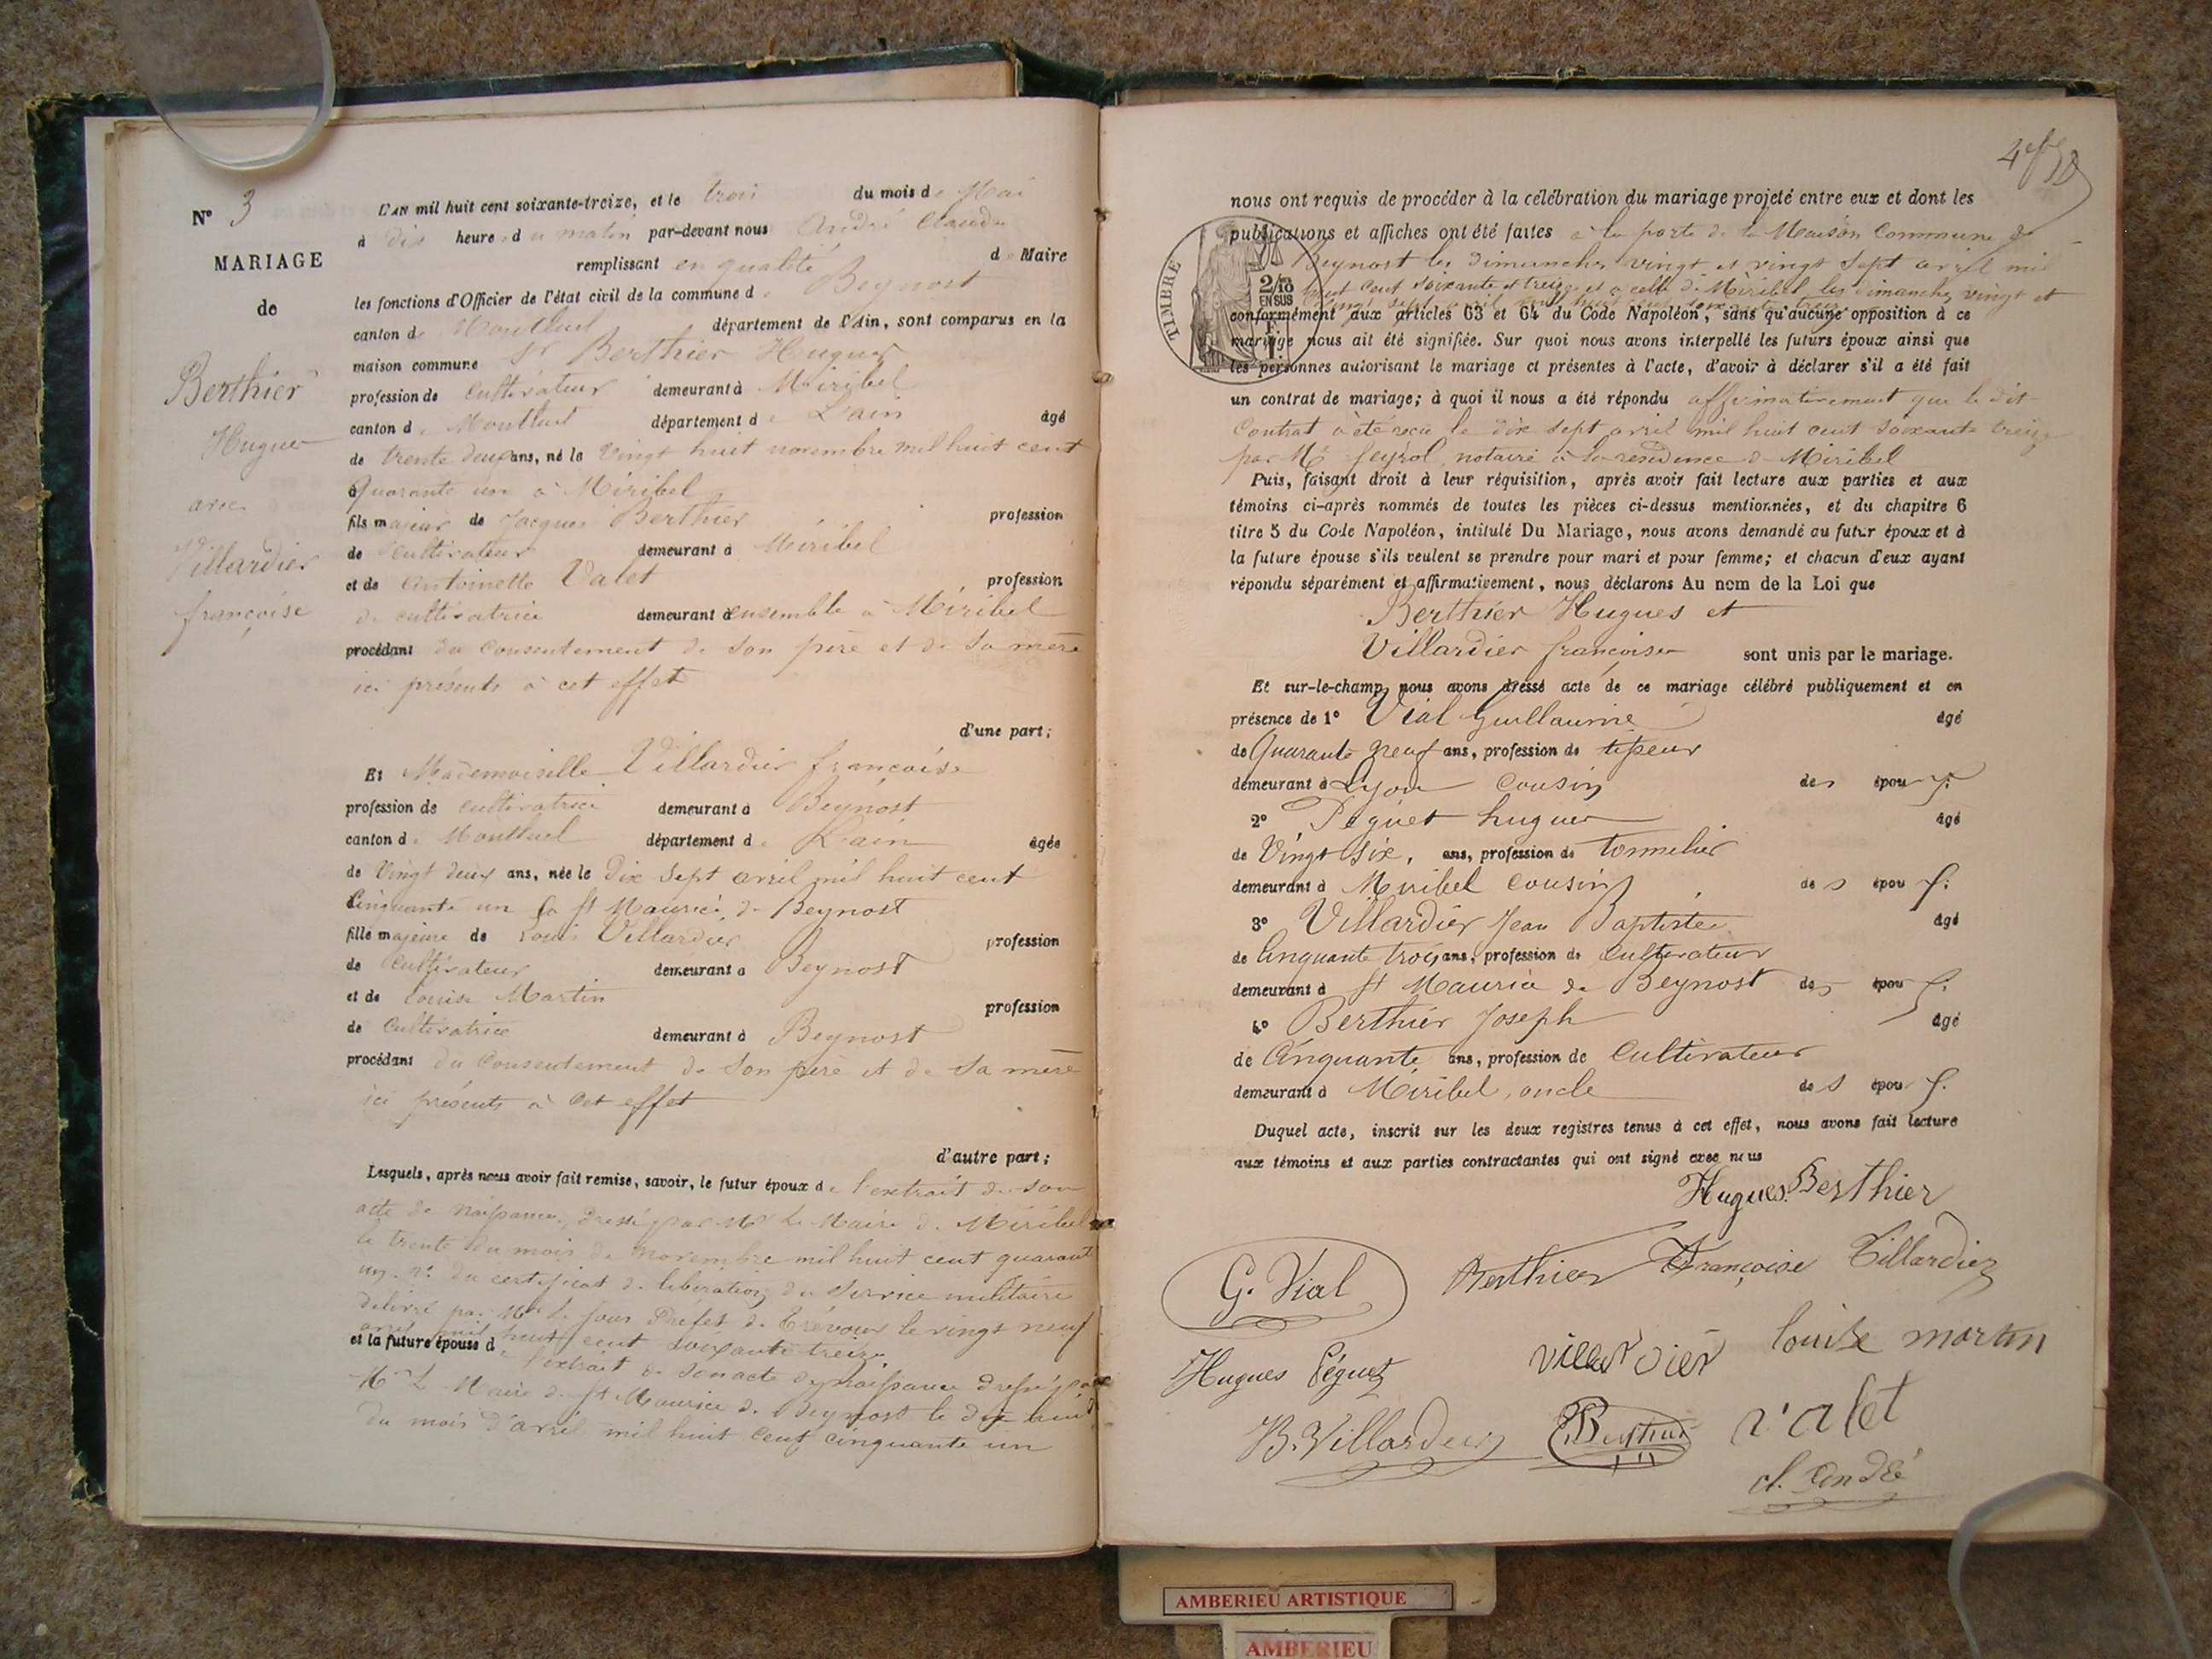 N° 3
MARIAGE
de
Berthier
Hugues
avec
Villardier
françoise
L'AN mil huit cent soixante-treize, et le trois du mois de Mai
à dix heures du matin par-devant nous André Claude
remplissant en qualité de Maire
les fonctions d'Officier de l'état civil de la commune de Beynost
canton de Montluel département de l'Ain, sont comparus en la
maison commune Sr Berthier Hugues
profession de Cultivateur demeurant à Miribel
canton de Montluel département de L'ain âgé
de trente deux ans, né le Vingt huit novembre mil huit cent
Quarante un à Miribel
fils majeur de Jacques Berthier profession
de Cultivateur demeurant à Miribel
et de Antoinette Valet profession
de cultivatrice demeurant à ensemble à Miribel
procédant du Consentement de son père et de sa mère
ici présents à cet effet
d'une part;
Et Mademoiselle Villardier françoise
profession de cultivatrice demeurant à Beynost
canton de Montluel département de L'ain âgée
de Vingt deux ans, née le Dix Sept avril mil huit cent
Cinquante un à St Maurice de Beynost
fille majeure de Louis Villardier profession
de Cultivateur demeurant à Beynost
et de Louise Martin profession
de Cultivatrice demeurant à Beynost
procédant du Consentement de son père et de sa mère
ici présents à cet effet
d'autre part;
Lesquels, après nous avoir fait remise, savoir, le futur époux de l'extrait de son
acte de naissance, dressé par Mr Le Maire de Miribel
le trente du mois de Novembre mil huit cent quarante
un. 2° du certificat de libération du Service militaire
délivré par Mr le Sous Préfet de Trévoux le vingt neuf
avril mil huit cent soixante treize
et la future épouse de l'extrait de son acte de naissance dressé par
Mr Le Maire de St Maurice de Beynost le dix huit
du mois d'avril mil huit Cent cinquante un
nous ont requis de procéder à la célébration du mariage projeté entre eux et dont les
publications et affiches ont été faites à la porte de la Maison Commune de
Beynost les Dimanches vingt et vingt Sept avril mil
huit Cent soixante et treize et à celle de Miribel les Dimanches vingt et
vingt sept avril mil huit cent soixante treize
TIMBRE
2/10
EN SUS
conformément aux articles 63 et 64 du Code Napoléon, sans qu'aucune opposition à ce
mariage nous ait été signifiée. Sur quoi nous avons interpellé les futurs époux ainsi que
les personnes autorisant le mariage et présentes à l'acte, d'avoir à déclarer s'il a été fait
un contrat de mariage; à quoi il nous a été répondu affirmativement que le dit
Contrat à été recu le dix sept avril mil huit cent soixante treize
par Me notaire à la residence de Miribel
Puis, faisant droit à leur réquisition, après avoir fait lecture aux parties et aux
témoins ci-après nommés de toutes les pièces ci-dessus mentionnées, et du chapitre 6
titre 5 du Code Napoléon, intitulé Du Mariage, nous avons demandé au futur époux et à
la future épouse s'ils veulent se prendre pour mari et pour femme; et chacun d'eux ayant
répondu séparément et affirmativement, nous déclarons Au nom de la Loi que
Berthier Hugues et
Villardier françoise sont unis par le mariage.
Et sur-le-champ nous avons dressé acte de ce mariage célébré publiquement et en
présence de 1° Vial Guillaume âgé
de Quarante neuf ans, profession de
demeurant à Lyon Cousin des époux
2° Péguet hugues âgé
de Vingt Six, ans, profession de tonnelier
demeurant à Miribel cousin des époux
3° Villardier Jean Baptiste âgé
de Cinquante trois ans, profession de Cultivateur
demeurant à St Maurice de Beynost des époux
4° Berthier Joseph âgé
de Cinquante ans, profession de Cultivateur
demeurant à Miribel, oncle des époux
Duquel acte, inscrit sur les deux registres tenus à cet effet, nous avons fait lecture
aux témoins et aux parties contractantes qui ont signé avec nous
Hugues Berthier
G. Vial Berthier Françoise Villardier
Hugues Péguet villardier louise martin
B. Villardier Berthier valet
cl. André
AMBERIEU ARTISTIQUE
AMBERIEU